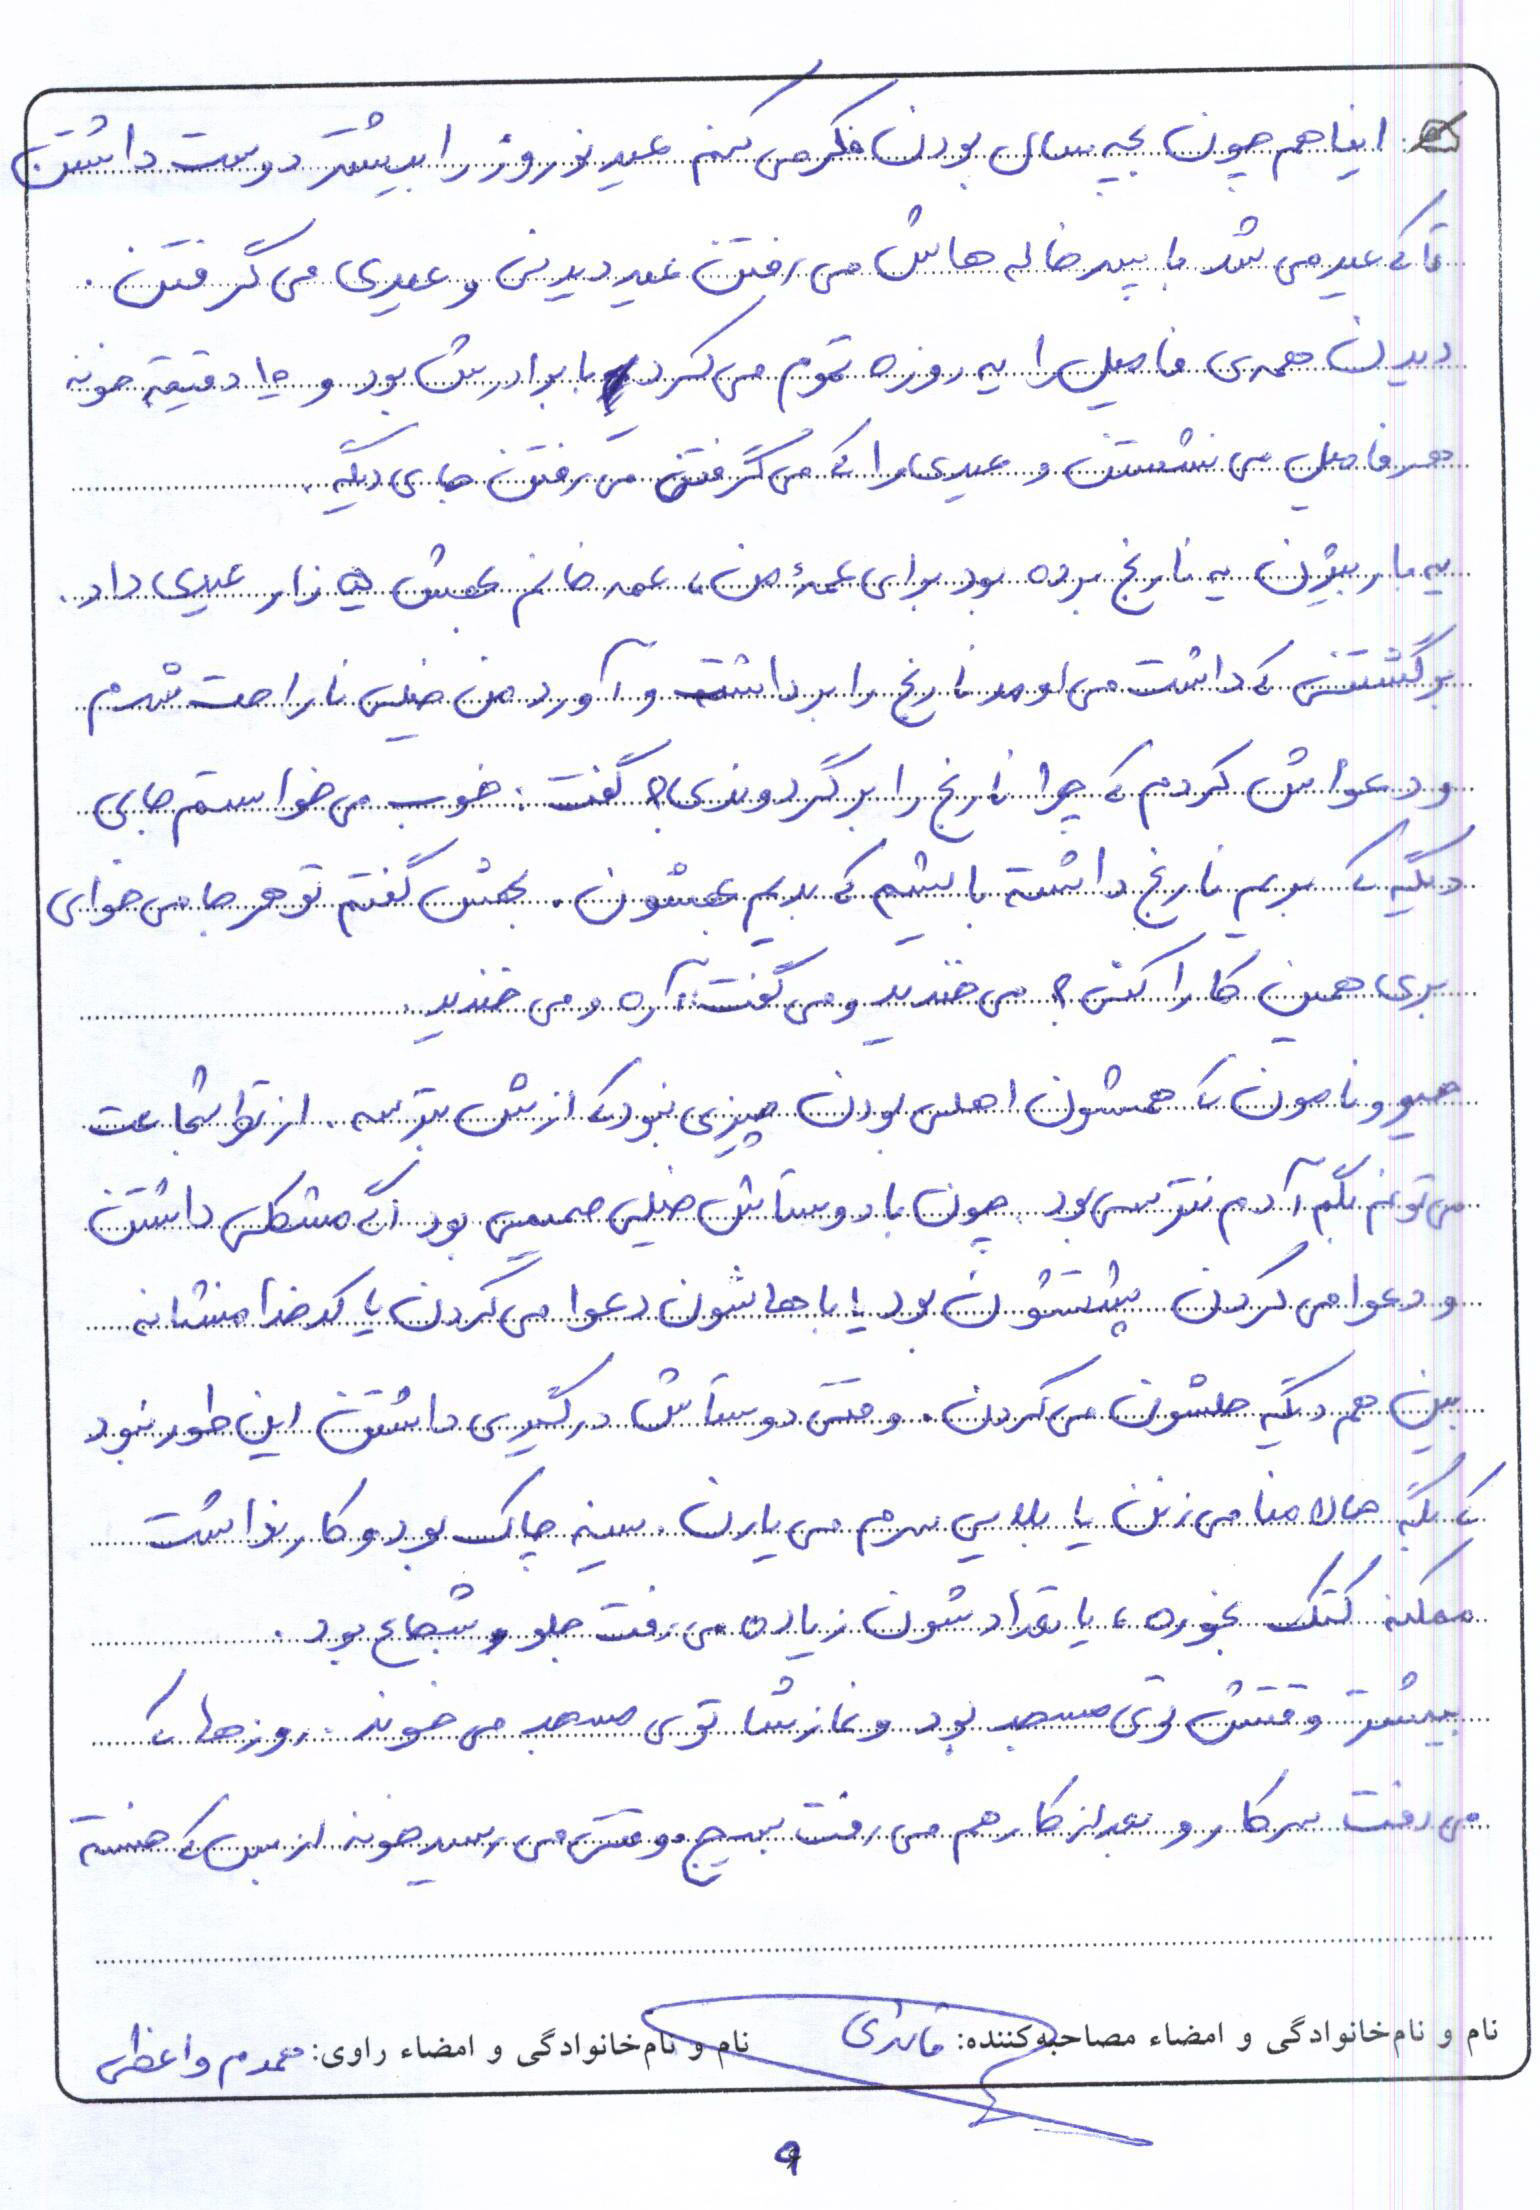 اینا هم چون بچه سال بودن فکر می کنم عید نوروز را بیشتر دوست داشتن
تا که عید می شد با پسرخاله هاش می رفتن عید دیدنی و عیدی می گرفتن .
دیدن همه ی فامیل را یه روزه تموم می کرد با برادرش بود و ۱۵ دقیقه خونه
هر فامیل می نشستن و عیدی را که می گرفتن می رفتن جای دیگه .
یه بار بیژن یه نارنج برده بود برای عمهٔ من ، عمه خانم بهش ۵ زار عیدی داد .
برگشتنی که داشت می اومد نارنج را برداشته و آورد من خیلی ناراحت شدم
و دعواش کردم که چرا نارنج را برگردوندی ؟ گفت : خوب می خواستم جایی
دیگه که بریم نارنج داشته باشیم که بدیم بهشون . بهش گفتم تو هر جا می خوای
بری همین کارا کنی ؟ می خندید و می گفت : آره و می خندید .
حیوونامون که همشون اهلی بودن چیزی نبود که ازش بترسه . از نظر شجاعت
می تونم بگم آدم نترسی بود . چون با دوستاش خیلی صمیمی بود اگه مشکلی داشتن
و دعوا می کردن پشتشون بود یا باهاشون دعوا می کردن یا کدخدا منشانه
بین هم دیگه حلشون می کردن . وقتی دوستاش درگیری داشتن این طور نبود
که بگه حالا منا می زنن یا بلایی سرم می یارن . سینه چاک بود و کار نداشت
ممکنه کتک بخوره ، یا تعدادشون زیاده می رفت جلو و شجاع بود .
بیشتر وقتش توی مسجد بود و نمازشا توی مسجد می خوند . روزها که
می رفت سر کار و بعد از کار هم می رفت بسیج و وقتی می رسید خونه از بس که خسته
نام و نام‌خانوادگی و امضاء مصاحبه‌کننده: نام و نام‌خانوادگی و امضاء راوی: واعظی
۹